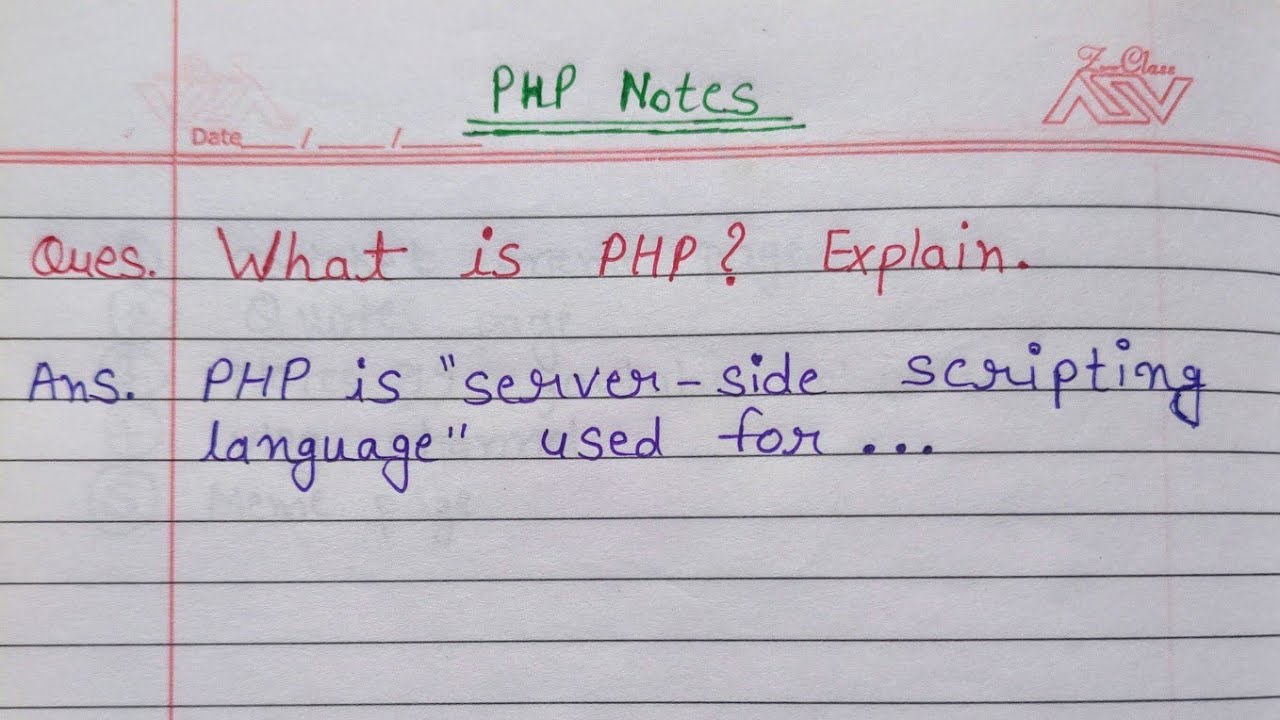 PHP Notes
Z-Class
Date ___ / ___ / ___
Ques. What is PHP? Explain.
Ans. PHP is "server-side scripting
language" used for ...